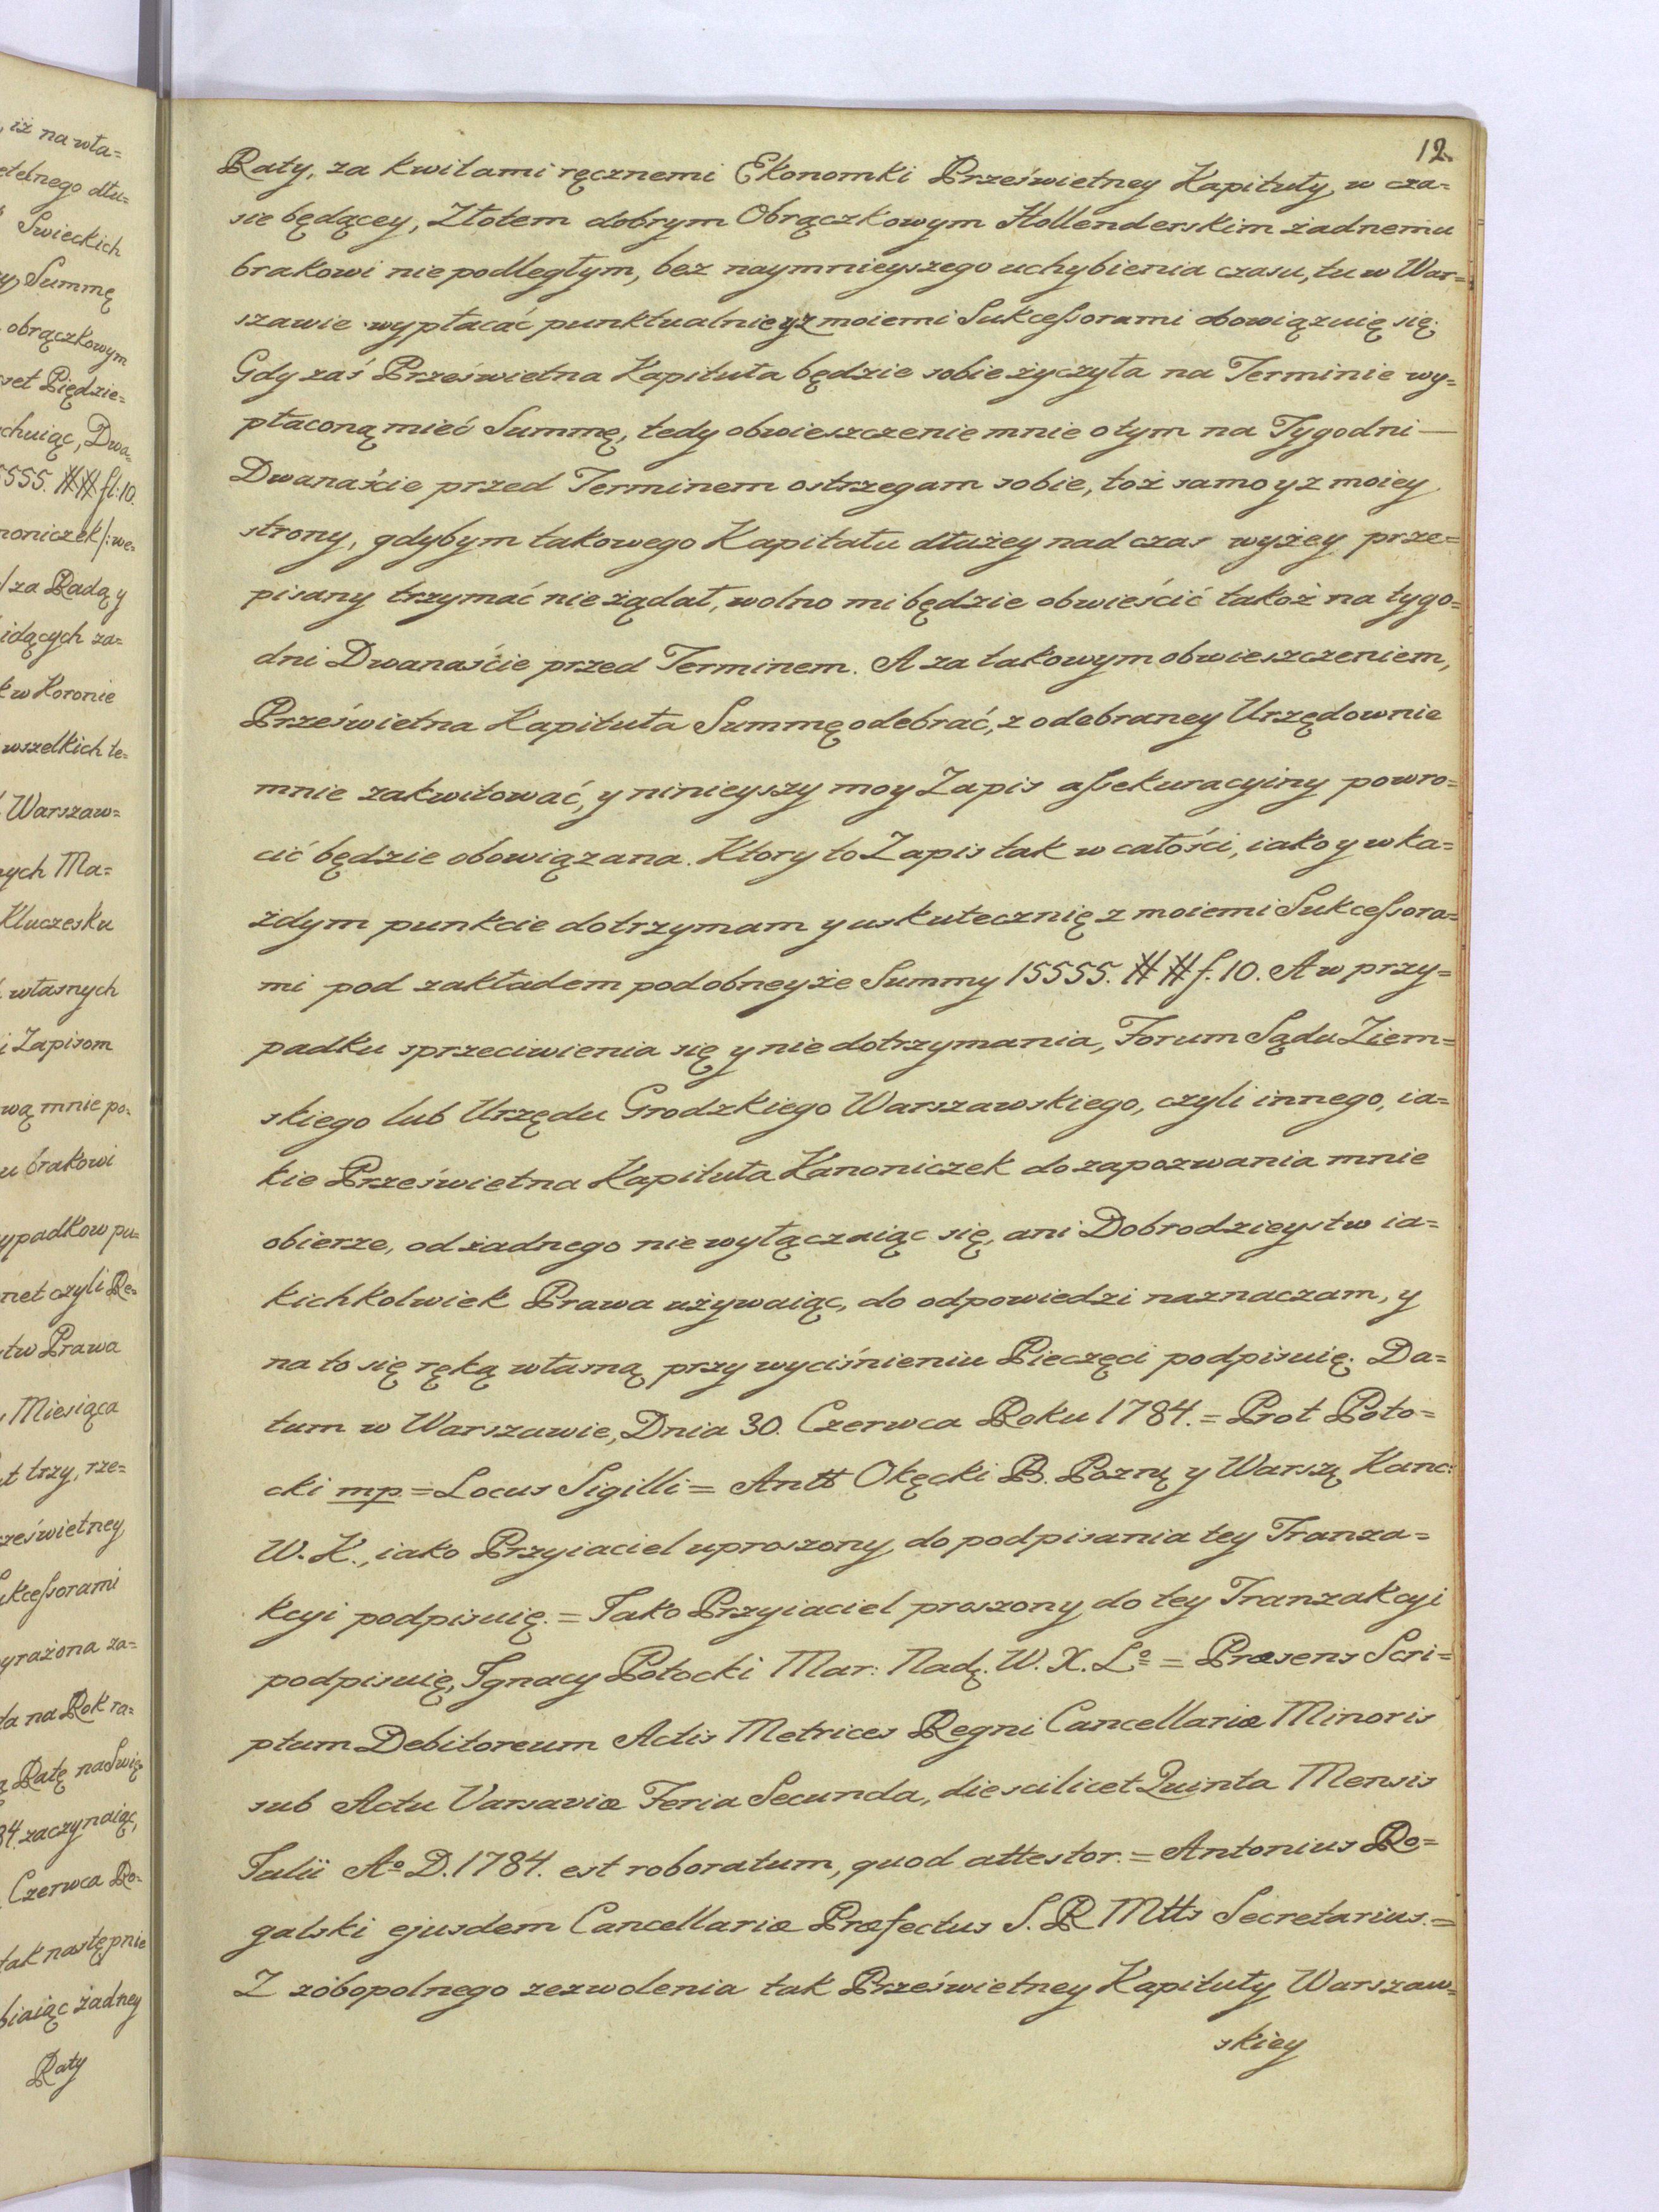 iż na wła=
etelnego dłu=
Swieckich
Summę
obrączkowym
set Piędzie=
chuiąc, Dwa=
5555. ## fl: 10.
noniczek/: we=
/za Radą y
idących za=
k w Koronie
wszelkich te=
Warszaw=
nych Ma=
Kluczesku
własnych
i Zapisom
wą mnie po=
u brakowi
ypadkow pu=
net czyli Re=
tw Prawa
Miesiąca
t trzy, rze=
ześwietney
ukceſsorami
yrażona za=
ta na Rok ra=
Ratę na Swię
84. zaczynaiąc,
Czerwca Ro=
tak następnie
biaiąc żadney
Raty
12.
Raty, za kwitami ręcznemi Ekonomki Prześwietney Kapituły, w cza=
sie będącey, Złotem dobrym Obrączkowym Hollenderskim żadnemu
brakowi nie podległym, bez naymnieyszego uchybienia czasu, tu w War=
szawie wypłacać punktualnie y z moiemi Sukceſsorami obowiązuię się.
Gdy zaś Prześwietna Kapituła będzie sobie życzyła na Terminie wy=
płaconą mieć Summę, tedy obwieszczenie mnie o tym na Tygodni —
Dwanaście przed Terminem ostrzegam sobie, toż samo y z moiey
strony, gdybym takowego Kapitału dłużey nad czas wyżey prze=
pisany trzymać nie żądał, wolno mi będzie obwieścić takoż na tygo=
dni Dwanaście przed Terminem. A za takowym obwieszczeniem,
Prześwietna Kapituła Summę odebrać, z odebraney Urzędownie
mnie zakwitować, y ninieyszy moy Zapis aſsekuracyiny powro=
cić będzie obowiązana. Ktory to Zapis tak w całości, iako y w ka=
żdym punkcie dotrzymam y uskutecznię z moiemi Sukceſsora=
mi pod zakładem podobneyże Summy 15555. ## f. 10. A w przy=
padku sprzeciwienia się y nie dotrzymania, Forum Sądu Ziem=
skiego lub Urzędu Grodzkiego Warszawskiego, czyli innego, ia=
kie Prześwietna Kapituła Kanoniczek do zapozwania mnie
obierze, od żadnego nie wyłączaiąc się, ani Dobrodzieystw ia=
kichkolwiek Prawa używaiąc, do odpowiedzi naznaczam, y
na to się ręką własną przy wyciśnieniu Pieczęci podpisuię. Da=
tum w Warszawie, Dnia 30. Czerwca Roku 1784. = Prot Poto=
cki mp. = Locus Sigilli = Antt Okęcki B. Poznę y Warszę Kanc:
W. K., iako Przyiaciel uproszony do podpisania tey Tranza=
kcyi podpisuię. = Jako Przyiaciel proszony do tey Tranzakcyi
podpisuię, Ignacy Potocki Mar: Nadę. W. X. Lº = Præsens Scri=
ptum Debitoreum Actis Metrices Regni Cancellariæ Minoris
sub Actu Varsaviæ Feria Secunda, die scilicet Quinta Mensis
Julii Aº D. 1784. est roboratum, quod attestor. = Antonius Ro=
galski ejusdem Cancellariæ Præfectus S. R Mtts Secretarius. =
Z zobopolnego zezwolenia tak Prześwietney Kapituły Warszaw=
skiey